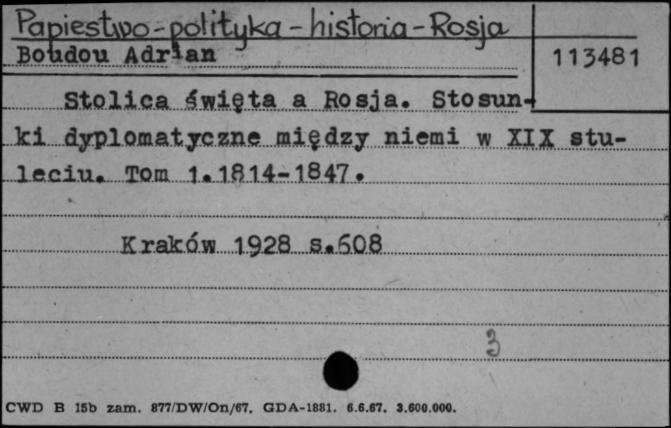 Papiestwo-polityka-historia-Rosja
Boudou Adrian
113481
Stolica święta a Rosja. Stosun-
ki dyplomatyczne między niemi w XIX stu-
leciu. Tom 1.1814-1847.
Kraków 1928 s.608
3
CWD B 15b zam. 877/DW/On/67. GDA-1881. 6.6.67. 3.600.000.